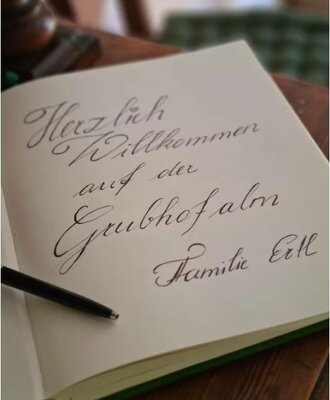 Herzlich
Willkommen
auf der
Grubhofalm
Familie Ertl